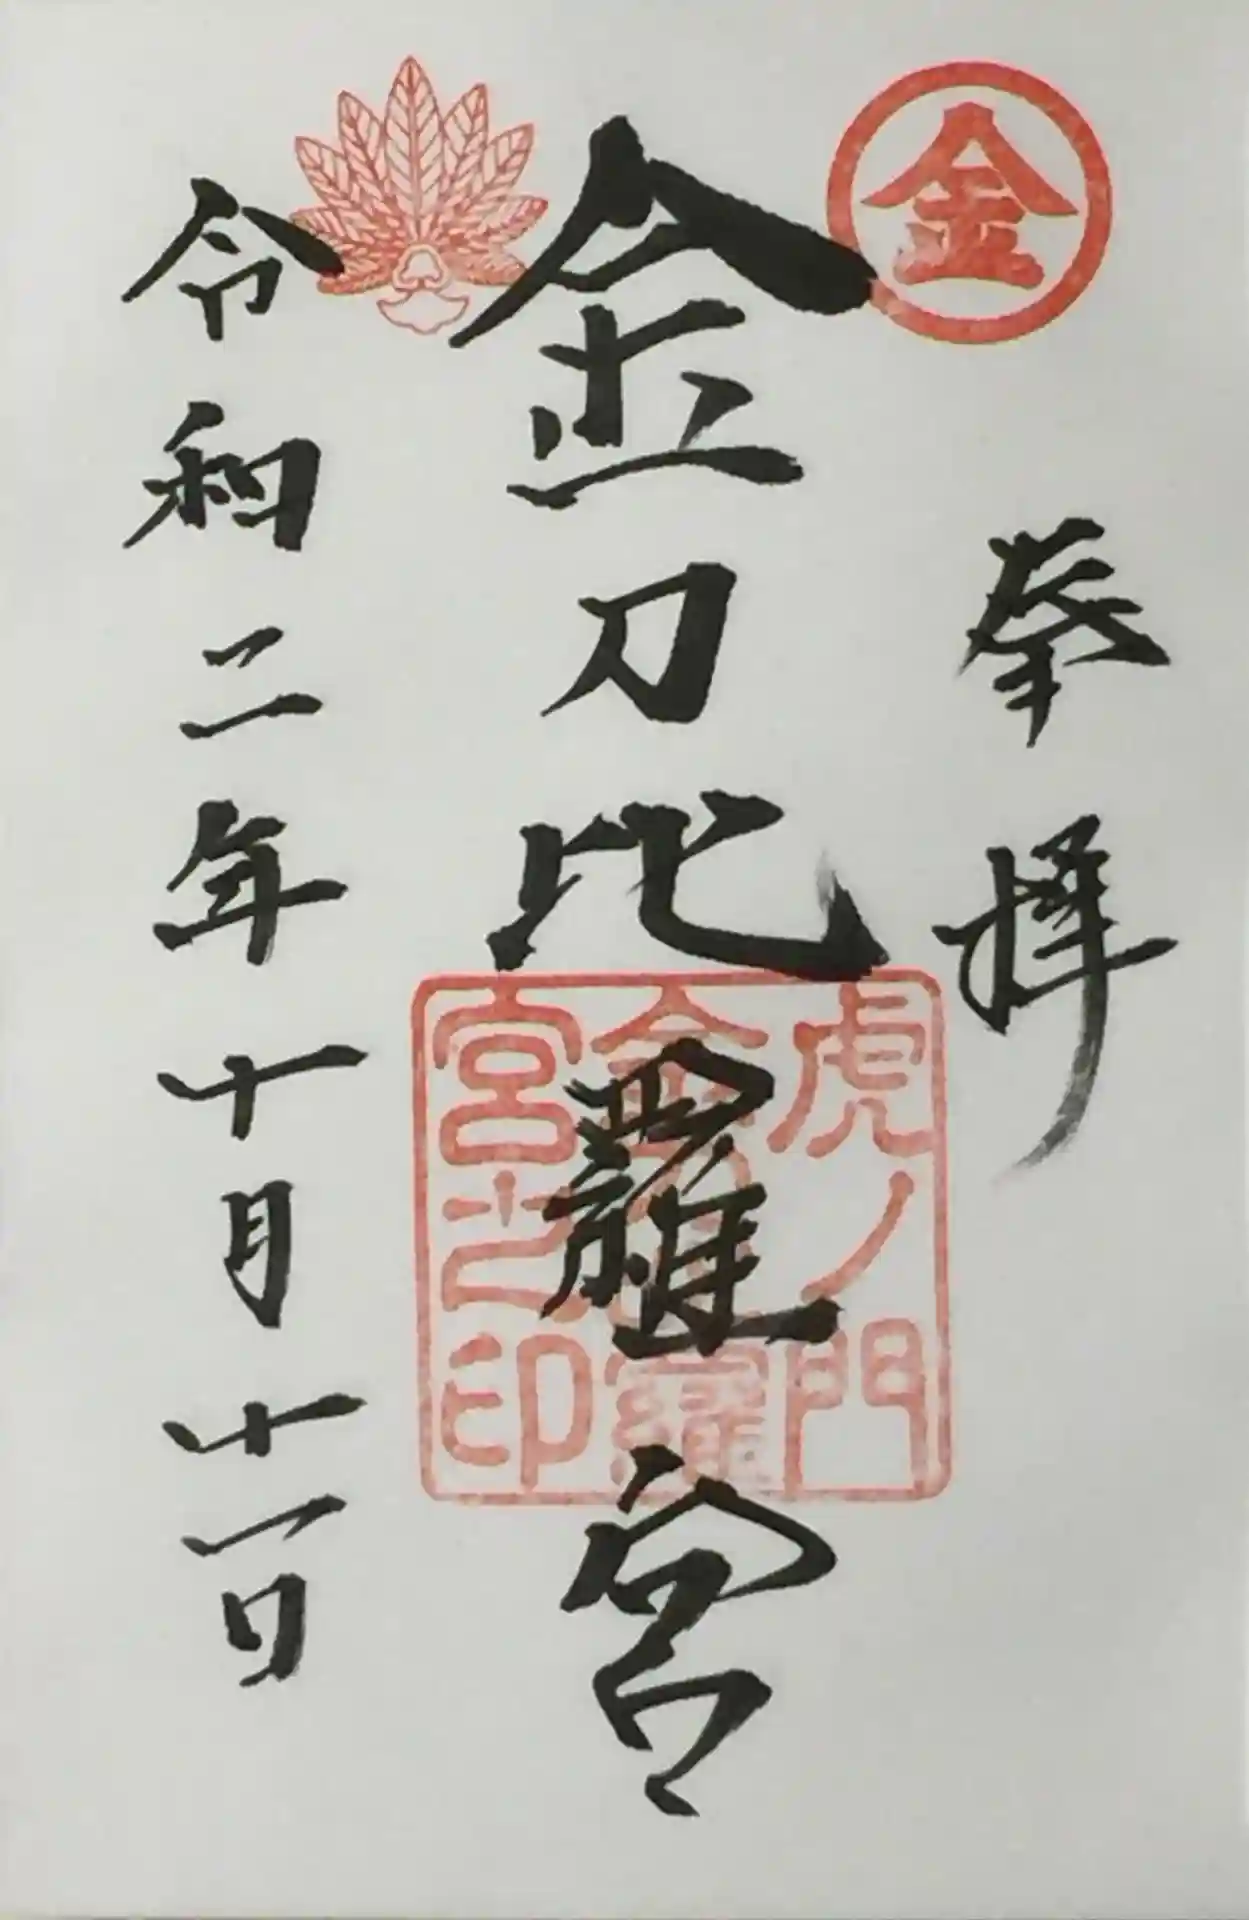 金
奉拝
金刀比羅宮
虎ノ門
金刀比羅
宮之印
令和二年十月十一日